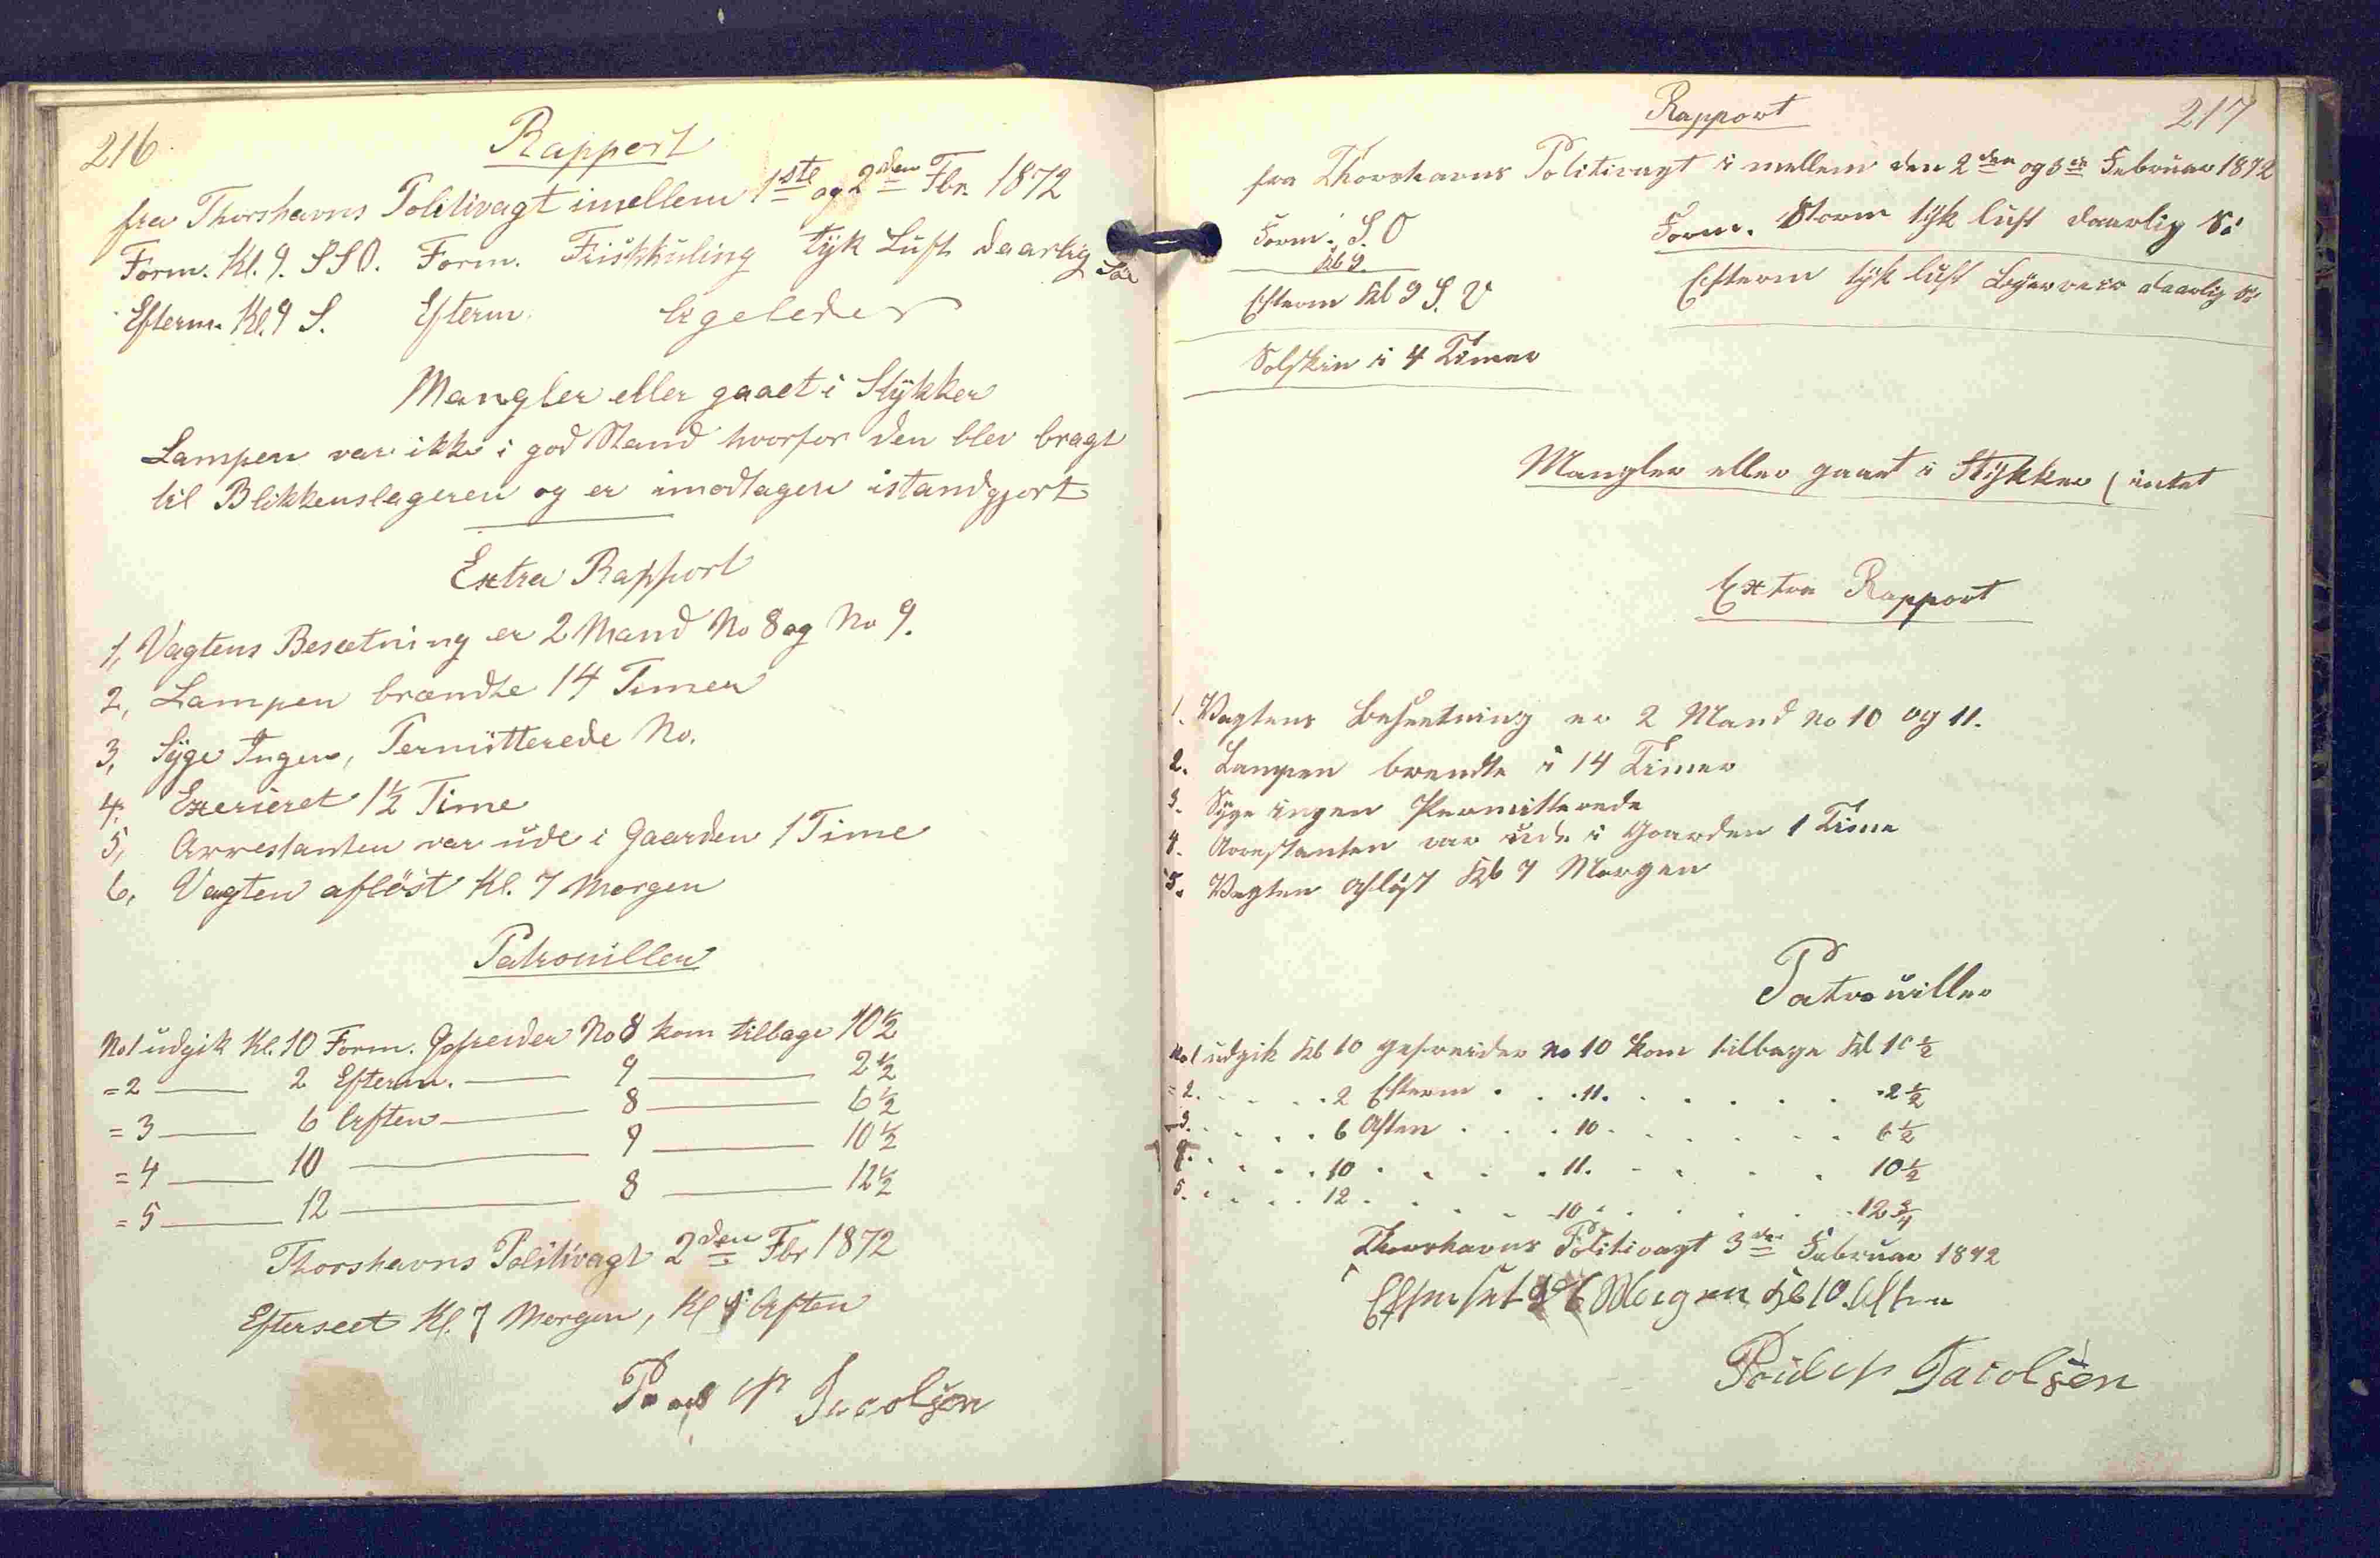 216
Rapport
fra Thorshavns Politivagt imellem 1ste og 2den Fbr. 1872
Form. Kl. 9. SSO. Form. Friskkuling tÿk Luft daarlig Sö
Efterm. Kl. 9 S. Efterm. ligeledes
Mangler eller gaaet i Stÿkker
Lampen var ikke i god Stand hvorfor den blev bragt
til Blikkenslageren og er imodtagen istandgjort
Extra Rapport
1, Vagtens Besætning er 2 Mand No 8 og No 9.
2, Lampen brændte 14 Timer
3, Sÿge Ingen, Permitterede No.
4, Exerceret 1 1/2 Time
5, Arrestanten var ude i Gaarden 1 Time
6, Vagten aflöst Kl. 7 Morgen
Patrouiller
No 1 udgik Kl. 10 Form. Gefreider No 8 kom tilbage 10 1/2
= 2 — 2 Efterm. — 9 — 2 1/2
= 3 — 6 Aften — 8 — 6 1/2
= 4 — 10 — 9 — 10 1/2
= 5 — 12 — 8 — 12 1/2
Thorshavns Politivagt 2den Fbr 1872
Efterseet Kl. 7 Morgen, Kl Aften
Jacobsen
217
Rapport
fra Thorshavns Politivagt i mellem den 2den og 3de Februar 1872
Form. S. O Form. Storm tÿk luft daarlig Sö
Kl 9.
Efterm Kl 9 S. V Efterm tÿk luft daarlig Sö
Solskin i 4 Timer
Mangler eller gaaet i Stÿkker ( intet
Extra Rapport
1. Vagtens Besætning er 2 Mand No 10 og 11.
2. Lampen brendte i 14 Timer
3. Sÿge ingen Permitterede
4. Arrestanten var ude i Gaarden 1 Time
5. Vagten Afløst Kl 7 Morgen
Patrouiller
No 1 udgik Kl 10 gefreider No 10 kom tilbage Kl 10 1/2
= 2. . . . . 2 Efterm . . . 11. . . . . . . 2 1/2
3. . . . . 6 Aften . . . 10 . . . . . . 6 1/2
4. . . . . 10 . . . . 11. . . . . 10 1/2
5. . . . . 12 . . . . 10 . . . . . 12 3/4
Thorshavns Politivagt 3die Februar 1872
Efterset 6 Morgen Kl 10. Aften
Jacobsen